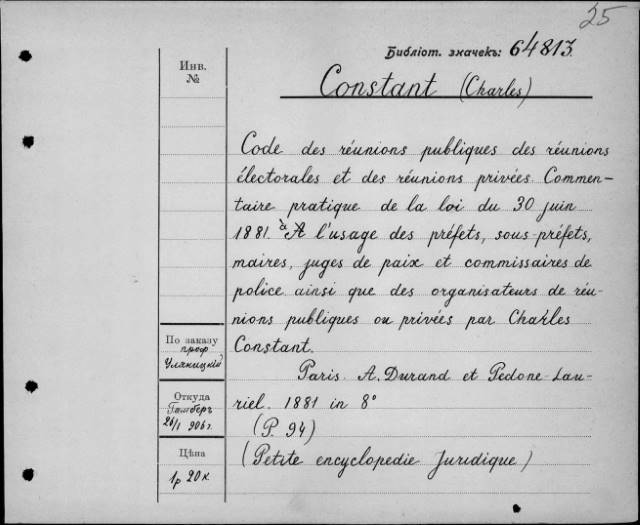 25
Библіот. значекъ: 64813.
Инв.
№
Constant (Charles)
Code des réunions publiques des réunions
électorales et des réunions privées. Commen-
taire pratique de la loi du 30 juin
1881. à l'usage des préfets, sous-préfets,
maires, juges de paix et commissaires de
police ainsi que des organisateurs de réu-
nions publiques ou privées par Charles
Constant.
Paris. A. Durand et Pedone-Lau-
riel. 1881 in 8°
(P. 94)
(Petite encyclopedie Juridique)
По заказу
проф
Уляницкій
Откуда
Гамберъ
26/I 906 г.
Цѣна
1 р 20 к.